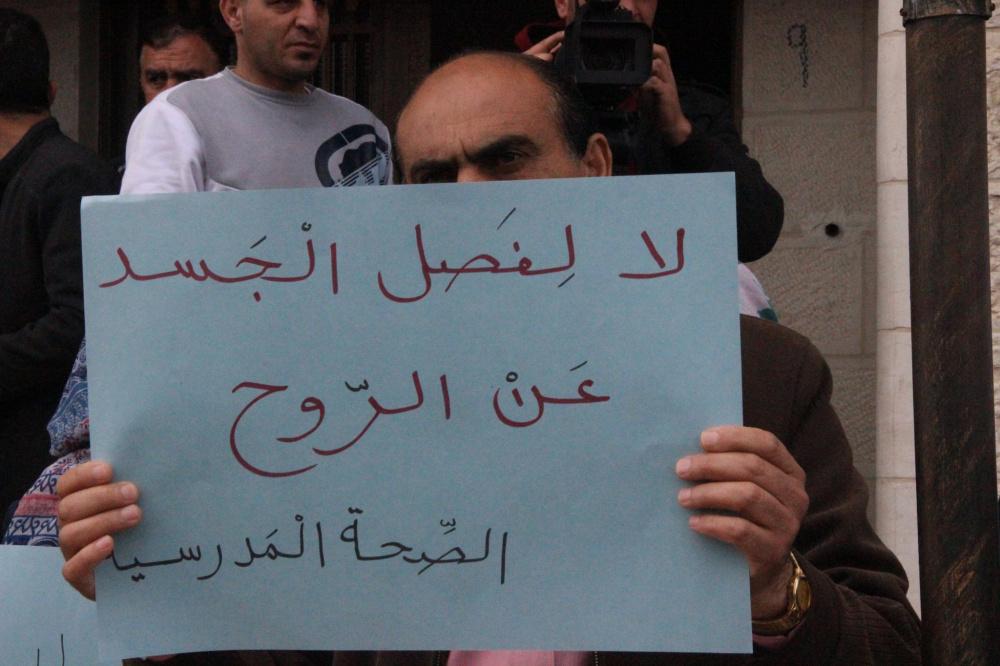 لا لِفَصْل الْجَسد
عَنْ الرّوح
الصِّحة الْمَدرسية